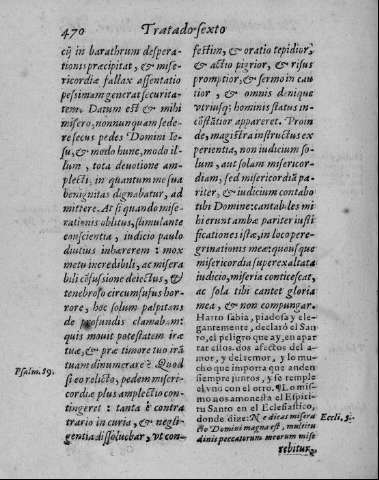 470 Tratado sexto
cij in barathrum despera-
tionis præcipitat, & mise-
ricordiæ fallax assentatio
pessimam generat securita-
tem. Datum est & mihi
misero, nonnunquam sede-
re secus pedes Domini Ie-
su, & modo hunc, modo il-
lum, tota deuotione am
plecti, in quantum me sua
benignitas dignabatur, ad
mittere. At si quando mise-
rationis oblitus, stimulante
conscientia, iudicio paulo
diutius inhærerem: mox
metu incredibili, ac misera
bili cõfusione deiectus, &
tenebroso circumfusus hor-
rore, hoc solum palpitans
de profundis clamabam:
quis nouit potestatem iræ
tuæ, & præ timore tuo irã
tuam dinumerare? Quod
si eo relicto, pedem miseri-
cordiæ plus amplecti con-
tingeret: tanta è contra
trario incuria, & negli-
gentia dissoluebar, vt con-
Psalm. 89.
festim, & oratio tepidior,
& actio pigrior, & risus
promptior, & sermo in cau
tior, & omnis denique
vtriusq; hominis status in-
cõstãtior appareret. Proin
de, magistra instructus ex
perientia, non iudicium so-
lum, aut solam misericor-
diam, sed misericordiã pa
riter, & iudicium cantabo
tibi Domine: cantabiles mi
hi erunt ambæ pariter iusti
ficationes istæ, in loco pere-
grinationis meæ: quousque
misericordia superexaltata
iudicio, miseria conticescat,
ac sola tibi cantet gloria
mea, & non compungar.
Harto sabia, piadosa y ele-
gantemente, declaró el San
to, el peligro que ay, en apar
tar ellos dos afectos del a-
mor, y del temor, y lo mu-
cho que importa que anden
siempre juntos, y se temple
el vno con el otro. ¶ Lo mis-
mo nos amonesta el Espiri-
tu Santo en el Eclesiastico,
donde dize: Ne dicas misera
tio Domini magna est, multitu
dinis peccatorum meorum mise
rebitur,
Eccli, 5.